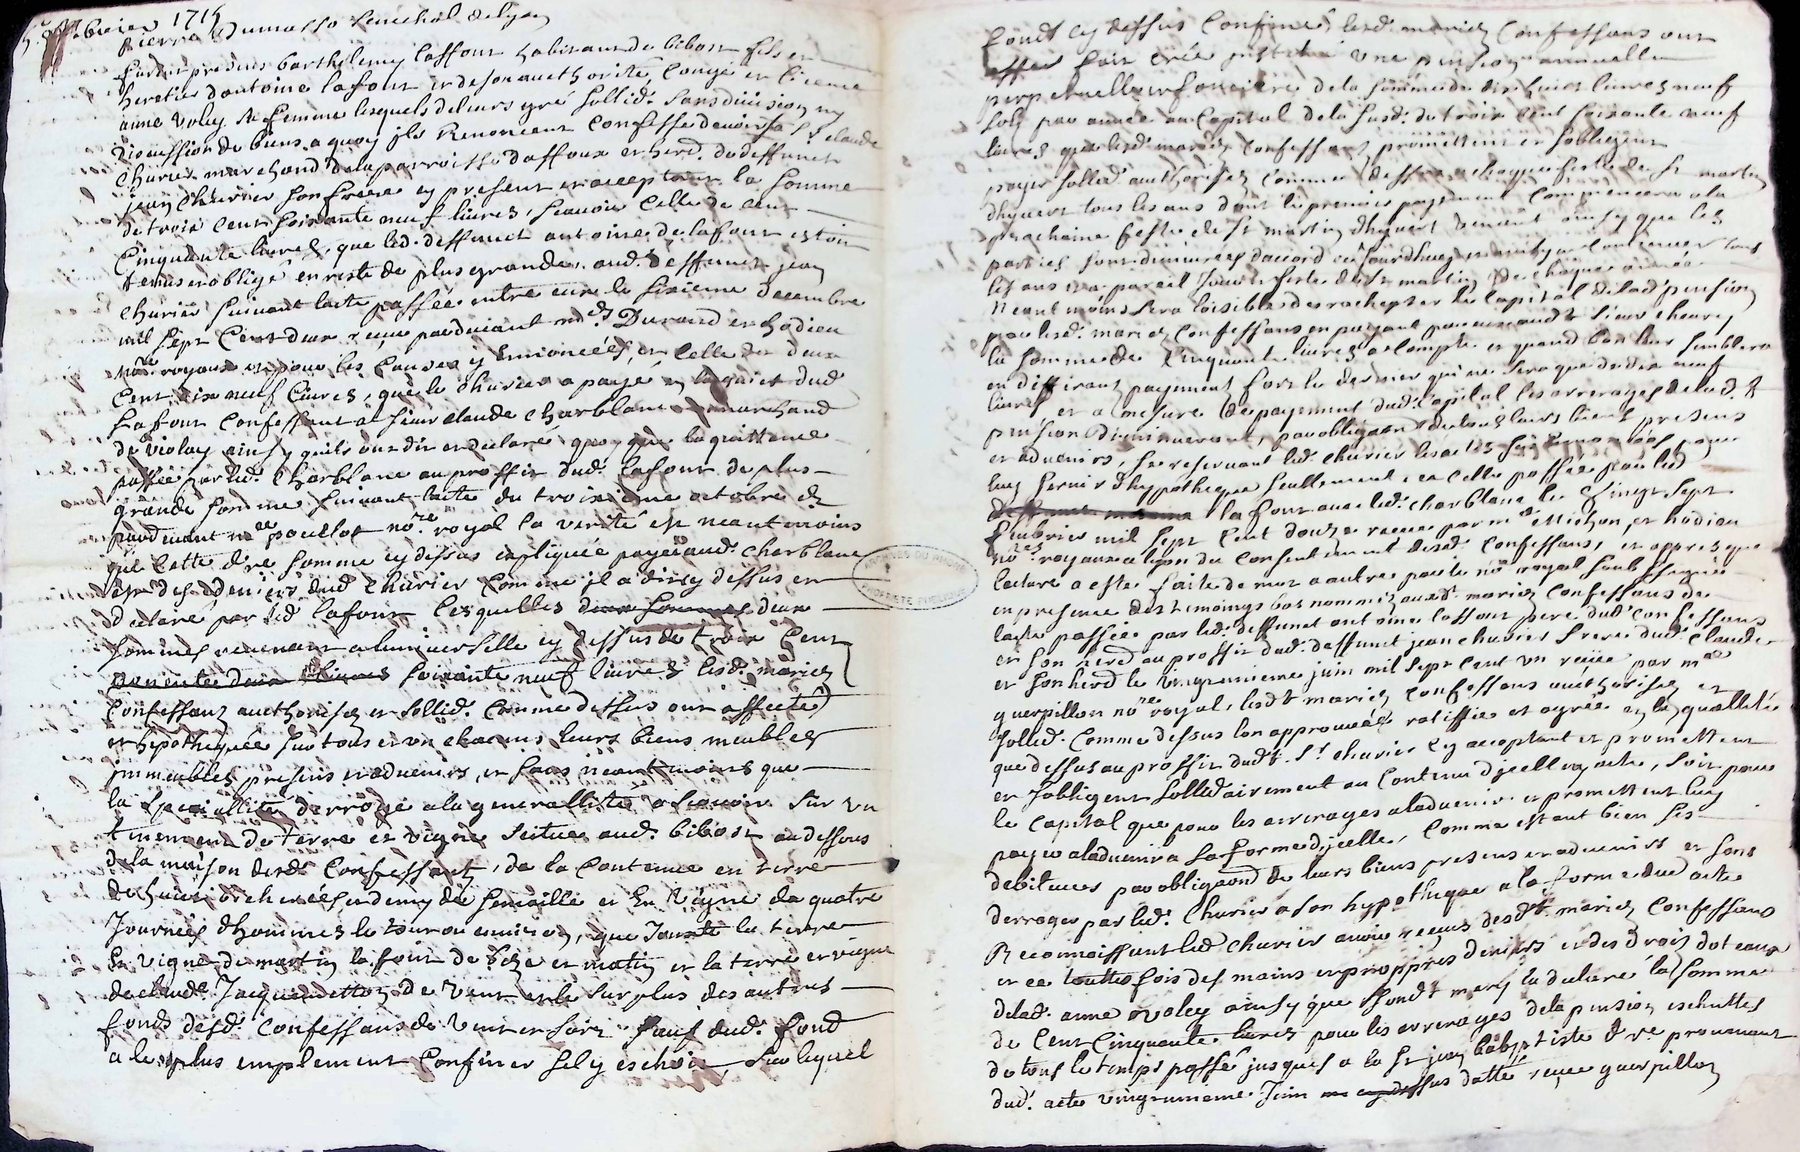 febvrier 1715
Pierre Dumas senechal de lyon
furent presens barthelemy laffont habitant de bibost fils et
heretier dantoine lafont et de son authorité, congé et licence
anne voley sa femme lesquels de leurs gré sollid. sans division ny
discussion de biens a quoy ils Renoncent confesse devoir a Sr claude
churier marchand de la parroisse daffoux et herd. de deffunct
jean churier son frere cy present et acceptant la somme
de trois cent soixante neuf livres, scavoir celle de cent
Cinquante livres, que led. deffunct antoine de lafont estoit
tenu et obligé en reste de plus grande, aud. deffunct jean
churier suivant lacte passée entre eux le sixieme decembre
mil sept cent deux receue pardevant mes Durand et hodieu
nores royaux et pour les causes y Enoncées, et celle de deux
Cent dix neuf livres, que le churier a payé en lacquict dud
lafont confessant a sieur claude charblanc marchand
de violay ainsy quils ont dit et declaré quoy que la quittance
passée par led. charblanc au proffit dud. lafont de plus
grande somme suivant lacte du troisieme octobre dr
pardevant me pouillot nore royal la verité est neantmoins
que cette dre somme cy dessus expliquée payée aud. charblanc
est des deniers dud churier comme il a dit cy dessus et
declaré par led lafont lesquelles deux sommes deux
sommes revenant a luniverselle cy dessus de trois cent
soixante neuf livres lesd. mariez
confessantz authorisez et sollid. comme dessus ont affecté
et hipothequée sur tous et un chacuns leurs biens meubles
jmmeubles presens et advenirs, et sans neantmoins que
la specialité derroge a la generallité a scavoir sur un
tenement de terre et vigne scitue aud. bibost au dessous
de la maison desd. Confessantz, de la contenue en terre
de huict bicherées et demy de semaille et En vigne de quatre
Journées dhommes le tout ou environ, que Jouxte la terre
Et vigne de martin lafont de bize et matin et la terre et vigne
de claude Jacquemetton de vent et le surplus des autres
fonds desd. confessans de vent et soir sauf dud. fond
a le plus emplement confiner sil y eschoit, sur lequel
fondt cy dessus confiné lesd. mariez confessans ont
perpetuelle et fonciere de la somme de dix huict livres neuf
sols par année au capital de la susd. de trois cent soixante neuf
livres que lesd. mariez confessantz promettent et sobligent
payer sollid. authorisez comme dessus a chaque feste de St martin
dhyvert tous les ans dont le premier payement commencera a la
prochaine feste de St martin dhyvert venant ainsy que les
parties sont demeurées daccord ce jourdhuy et ainsy continuer tous
les ans a pareil Jour et feste de St martin de chaque année
Neantmoins sera loisible de rachepter le capital de lad. pension
par lesd. mariez confessans en payant par eux aud. sieur churier
la somme de Cinquante livres a compte et quand bon leur semblera
en differant payement fors le dernier qui ne sera que de dix neuf
livres et a mesure de payement dud. capital les arrerages de lad.
pension diminueront, par obligaon de tous leurs biens presens
et advenirs, se reservant led. churier les actes sus enoncées pour
luy servir dhypotheque seullement, et celle passée par led
lafont avec led. charblanc le vingt sept
febvrier mil sept cent douze receue par me Michon, et hodieu
nores royaux a lyon du consentement desd. confessans, et appres que
lecture a esté faite de mot a autre par le nore royal soubssigné
en presence des temoings bas nommez auxd. mariez confessans de
lacte passée par led. deffunct antoine laffont pere dud. confessans
et son herd au proffit dud. deffunct jean churier frere dud. claude
et son herd le vingt unieme juin mil sept cent un receue par me
querpillon nore royal, lesdt mariez confessans authorisez et
sollid. comme dessus lon approuvée ratiffié et agrée en la quallité
que dessus au proffit dudt. Sr churier cy acceptant et promettent
et sobligent sollidairement au contenu dicelle acte, soit pour
le capital que pour les arrerages a ladvenir et promettent luy
payer a ladvenir a la forme dicelle, comme estant bien ses
debiteurs par obligaond de leurs biens presens et advenirs et sans
derroger par led. Churier a son hypotheque a la forme dud acte
Reconnoissant led churier avoir receus desdt mariez confessans
et ce touttefois des mains et proppres deniers et des droitz dotteaux
de lad. anne voley ainsy que ffondt mary la declaré la somme
de Cent Cinquante livres pour les arrerages de la pension escheutes
de tous le temps passé jusques a la St jean babptiste dre provenant
dud. acte vingt unieme Juin cy dessus datté, receu querpillon